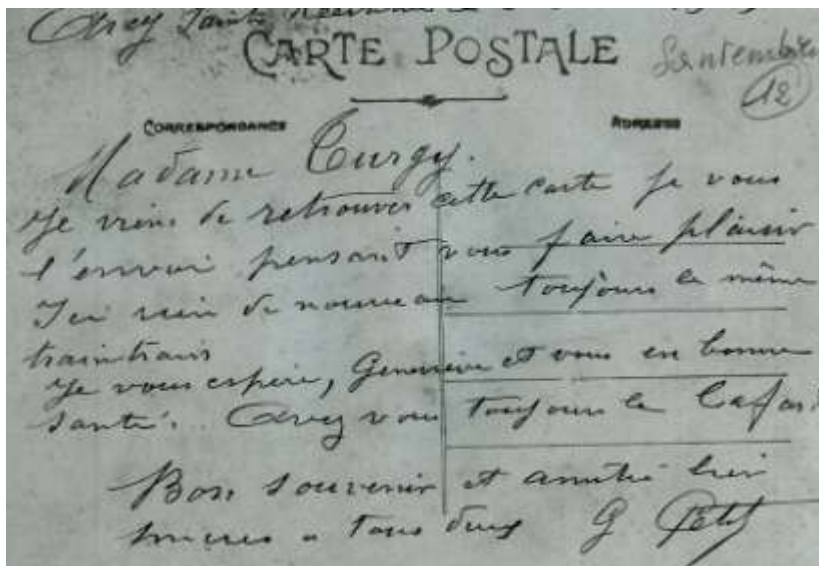 Arcy Sainte
CARTE POSTALE
Septembre
12
CORRESPONDANCE
ADRESSE
Madame Turgy.
Je viens de retrouver cette carte je vous
l'envoi pensant vous faire plaisir
Ici rien de nouveau toujours le même
traintrain
Je vous espère, Geneviève et vous en bonne
santé. Avez vous toujours le Cafard
Bon souvenir et amitié bien
sincères a tous deux G Petit